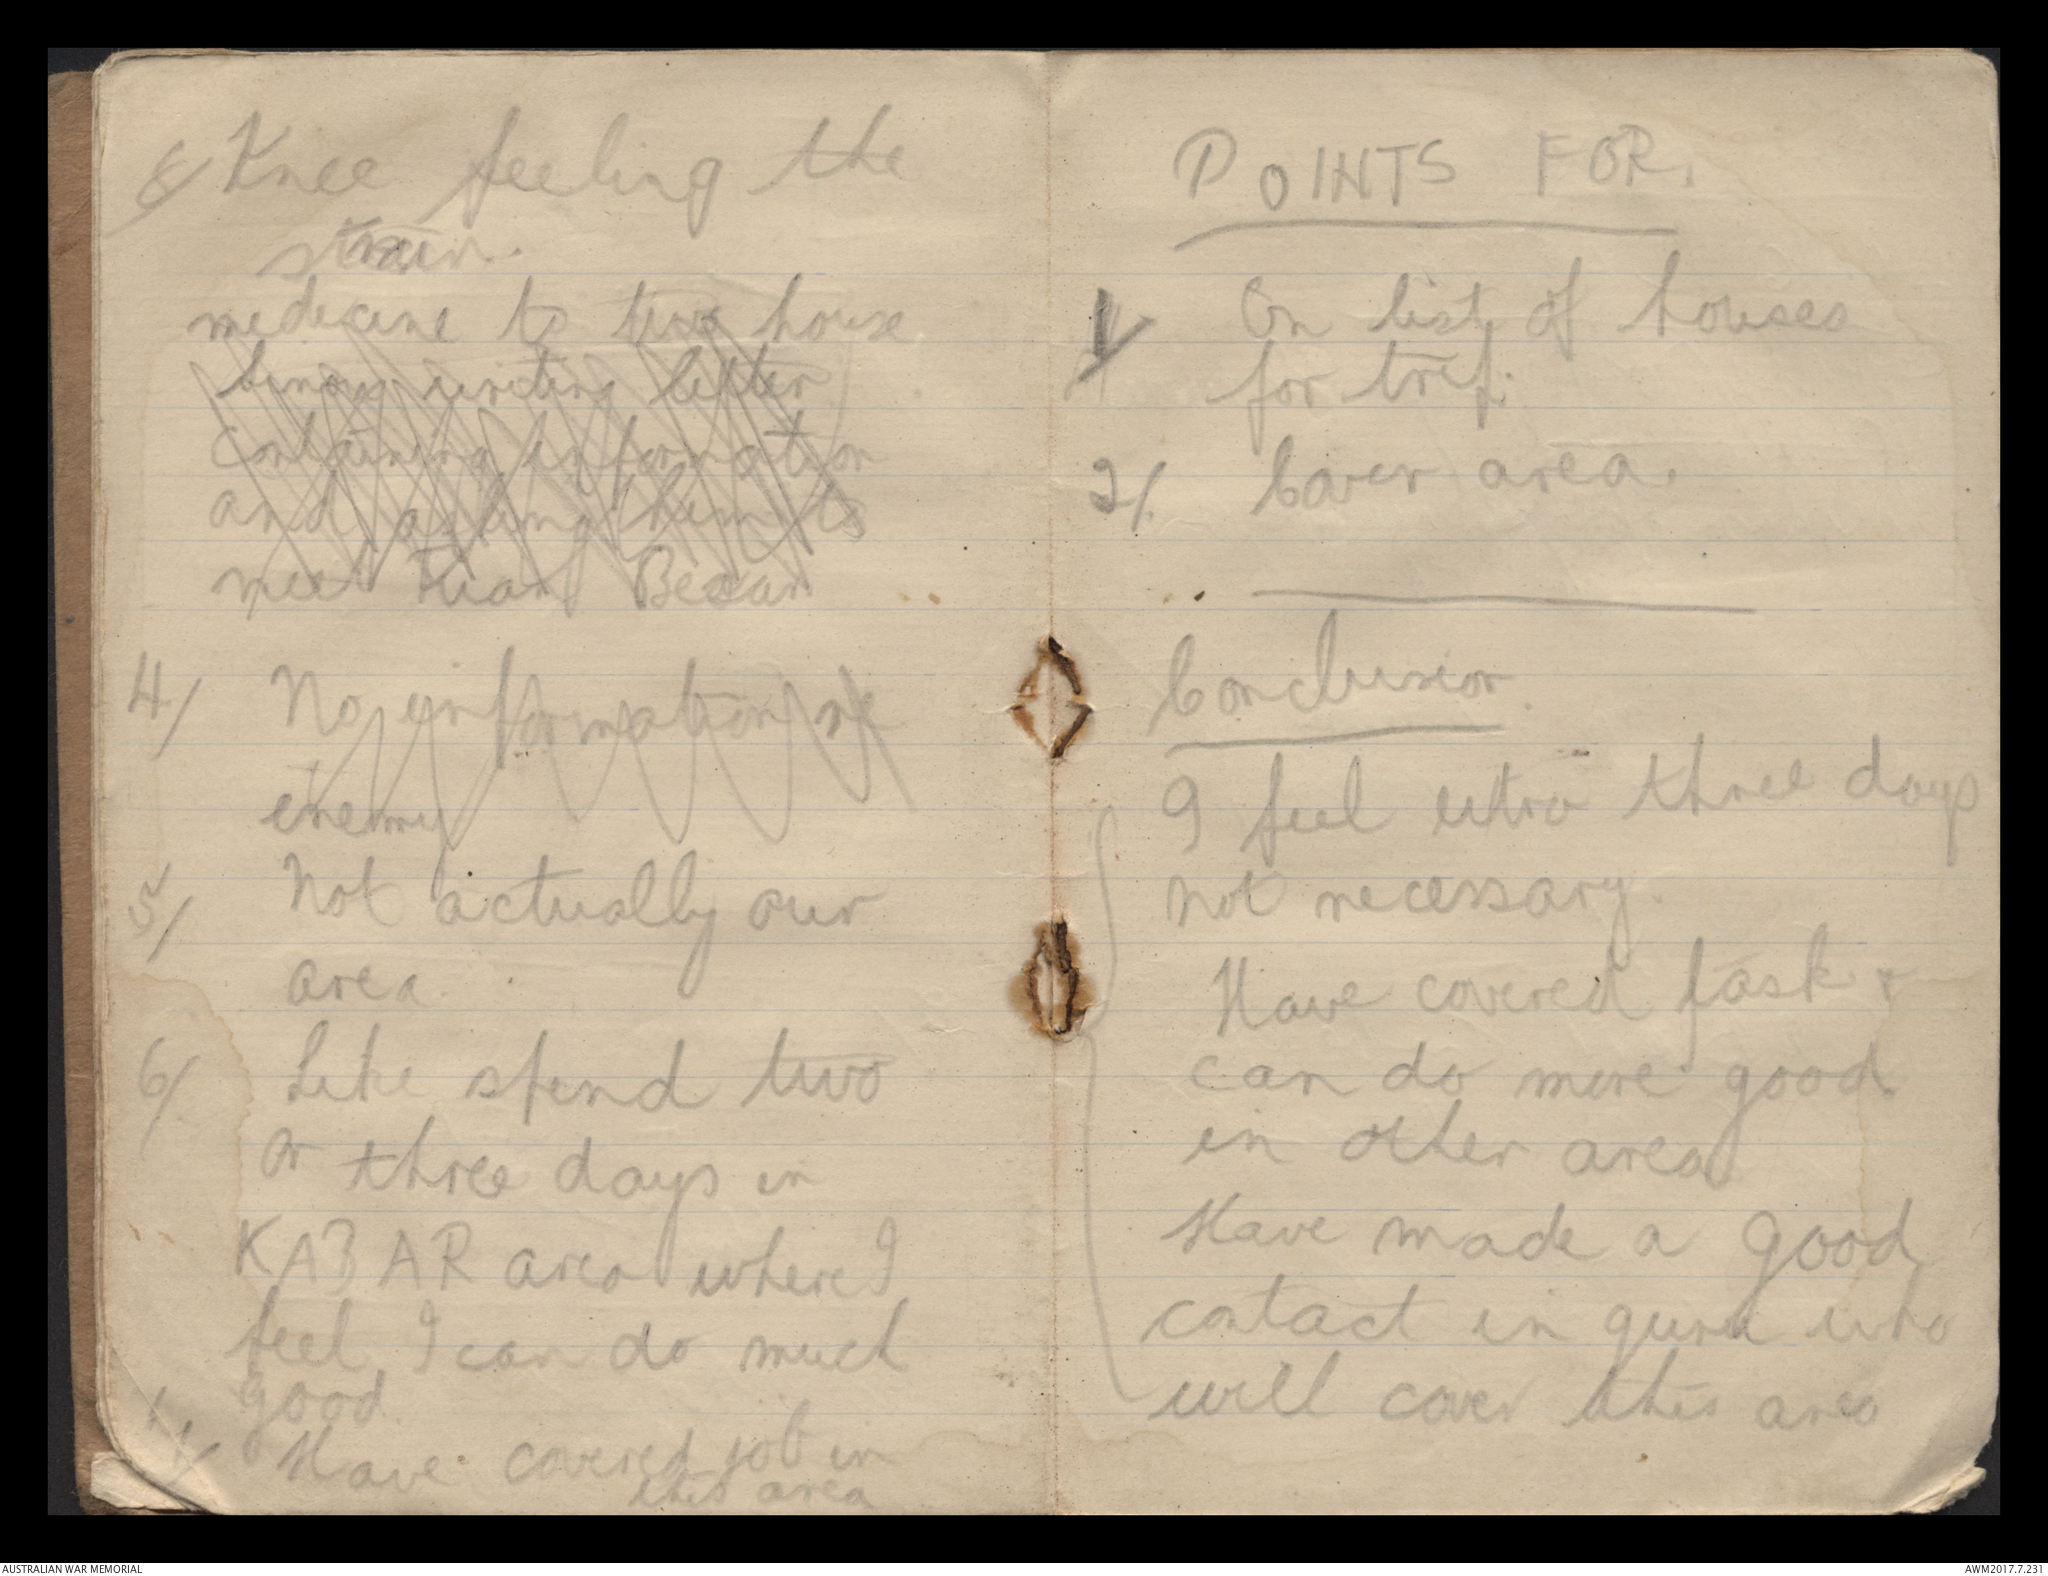 8/ Knee feeling the
strain.
medicine to two house
binow writing letter
containing information
and asking them to
meet Tuan Besar
4/ No information re
enemy
5/ Not actually our
area.
6/ Like spend two
or three days in
KABAR area where I
feel I can do much
good.
Have covered job in
this area
POINTS FOR.
1/ On list of houses
for tref.
2/. Cover area.
Conclusion
I feel extra three days
not necessary.
Have covered task &
can do more good
in other area
Have made a good
contact in guru who
will cover this area
AUSTRALIAN WAR MEMORIAL
AWM2017.7.231